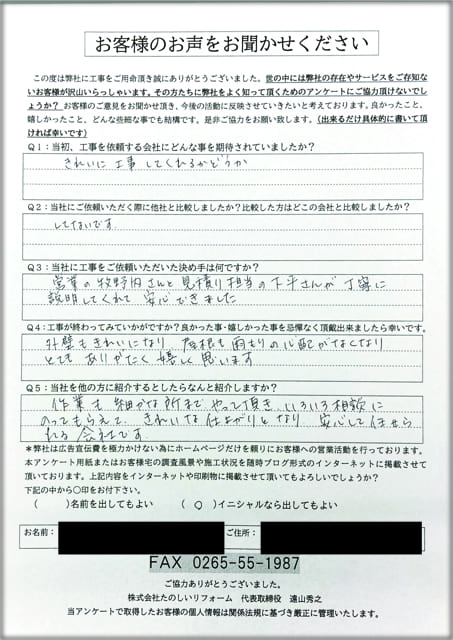 お客様のお声をお聞かせください
この度は弊社に工事をご用命頂き誠にありがとうございました。世の中には弊社の存在やサービスをご存知な
いお客様が沢山いらっしゃいます。その方たちに弊社をよく知って頂くためのアンケートにご協力頂けないで
しょうか?お客様のご意見をお聞かせ頂き、今後の活動に反映させていきたいと考えております。良かったこと、
嬉しかったこと、どんな些細な事でも結構です。是非ご協力をお願い致します。(出来るだけ具体的に書いて頂
ければ幸いです)
Q1:当初、工事を依頼する会社にどんな事を期待されていましたか?
きれいに工事してくれるかどうか
Q2:当社にご依頼いただく際に他社と比較しましたか?比較した方はどこの会社と比較しましたか?
してないです。
Q3:当社に工事をご依頼いただいた決め手は何ですか?
営業の牧野内さんと見積り担当の下平さんが丁寧に
説明してくれて安心できました
Q4:工事が終わってみていかがですか?良かった事・嬉しかった事を忌憚なく頂戴出来ましたら幸いです。
外壁もきれいになり、屋根も雨もりの心配がなくなり
とてもありがたく嬉しく思います
Q5:当社を他の方に紹介するとしたらなんと紹介しますか?
作業も細かな所までやって頂き、いろいろ相談に
のってもらえて、きれいな仕上がりとなり、安心して任せら
れる会社です。
*弊社は広告宣伝費を極力かけない為にホームページだけを頼りにお客様への営業活動を行っております。
本アンケート用紙またはお客様宅の調査風景や施工状況を随時ブログ形式のインターネットに掲載させて
頂いております。上記内容をインターネットや印刷物に掲載させて頂いてもよろしいでしょうか?
下記の中から○印をお付下さい。
( )名前を出してもよい ( ○ )イニシャルなら出してもよい
お名前: ご住所:
FAX 0265-55-1987
ご協力ありがとうございました。
株式会社たのしいリフォーム 代表取締役 遠山秀之
当アンケートで取得したお客様の個人情報は関係法規に基づき厳正に管理いたします。